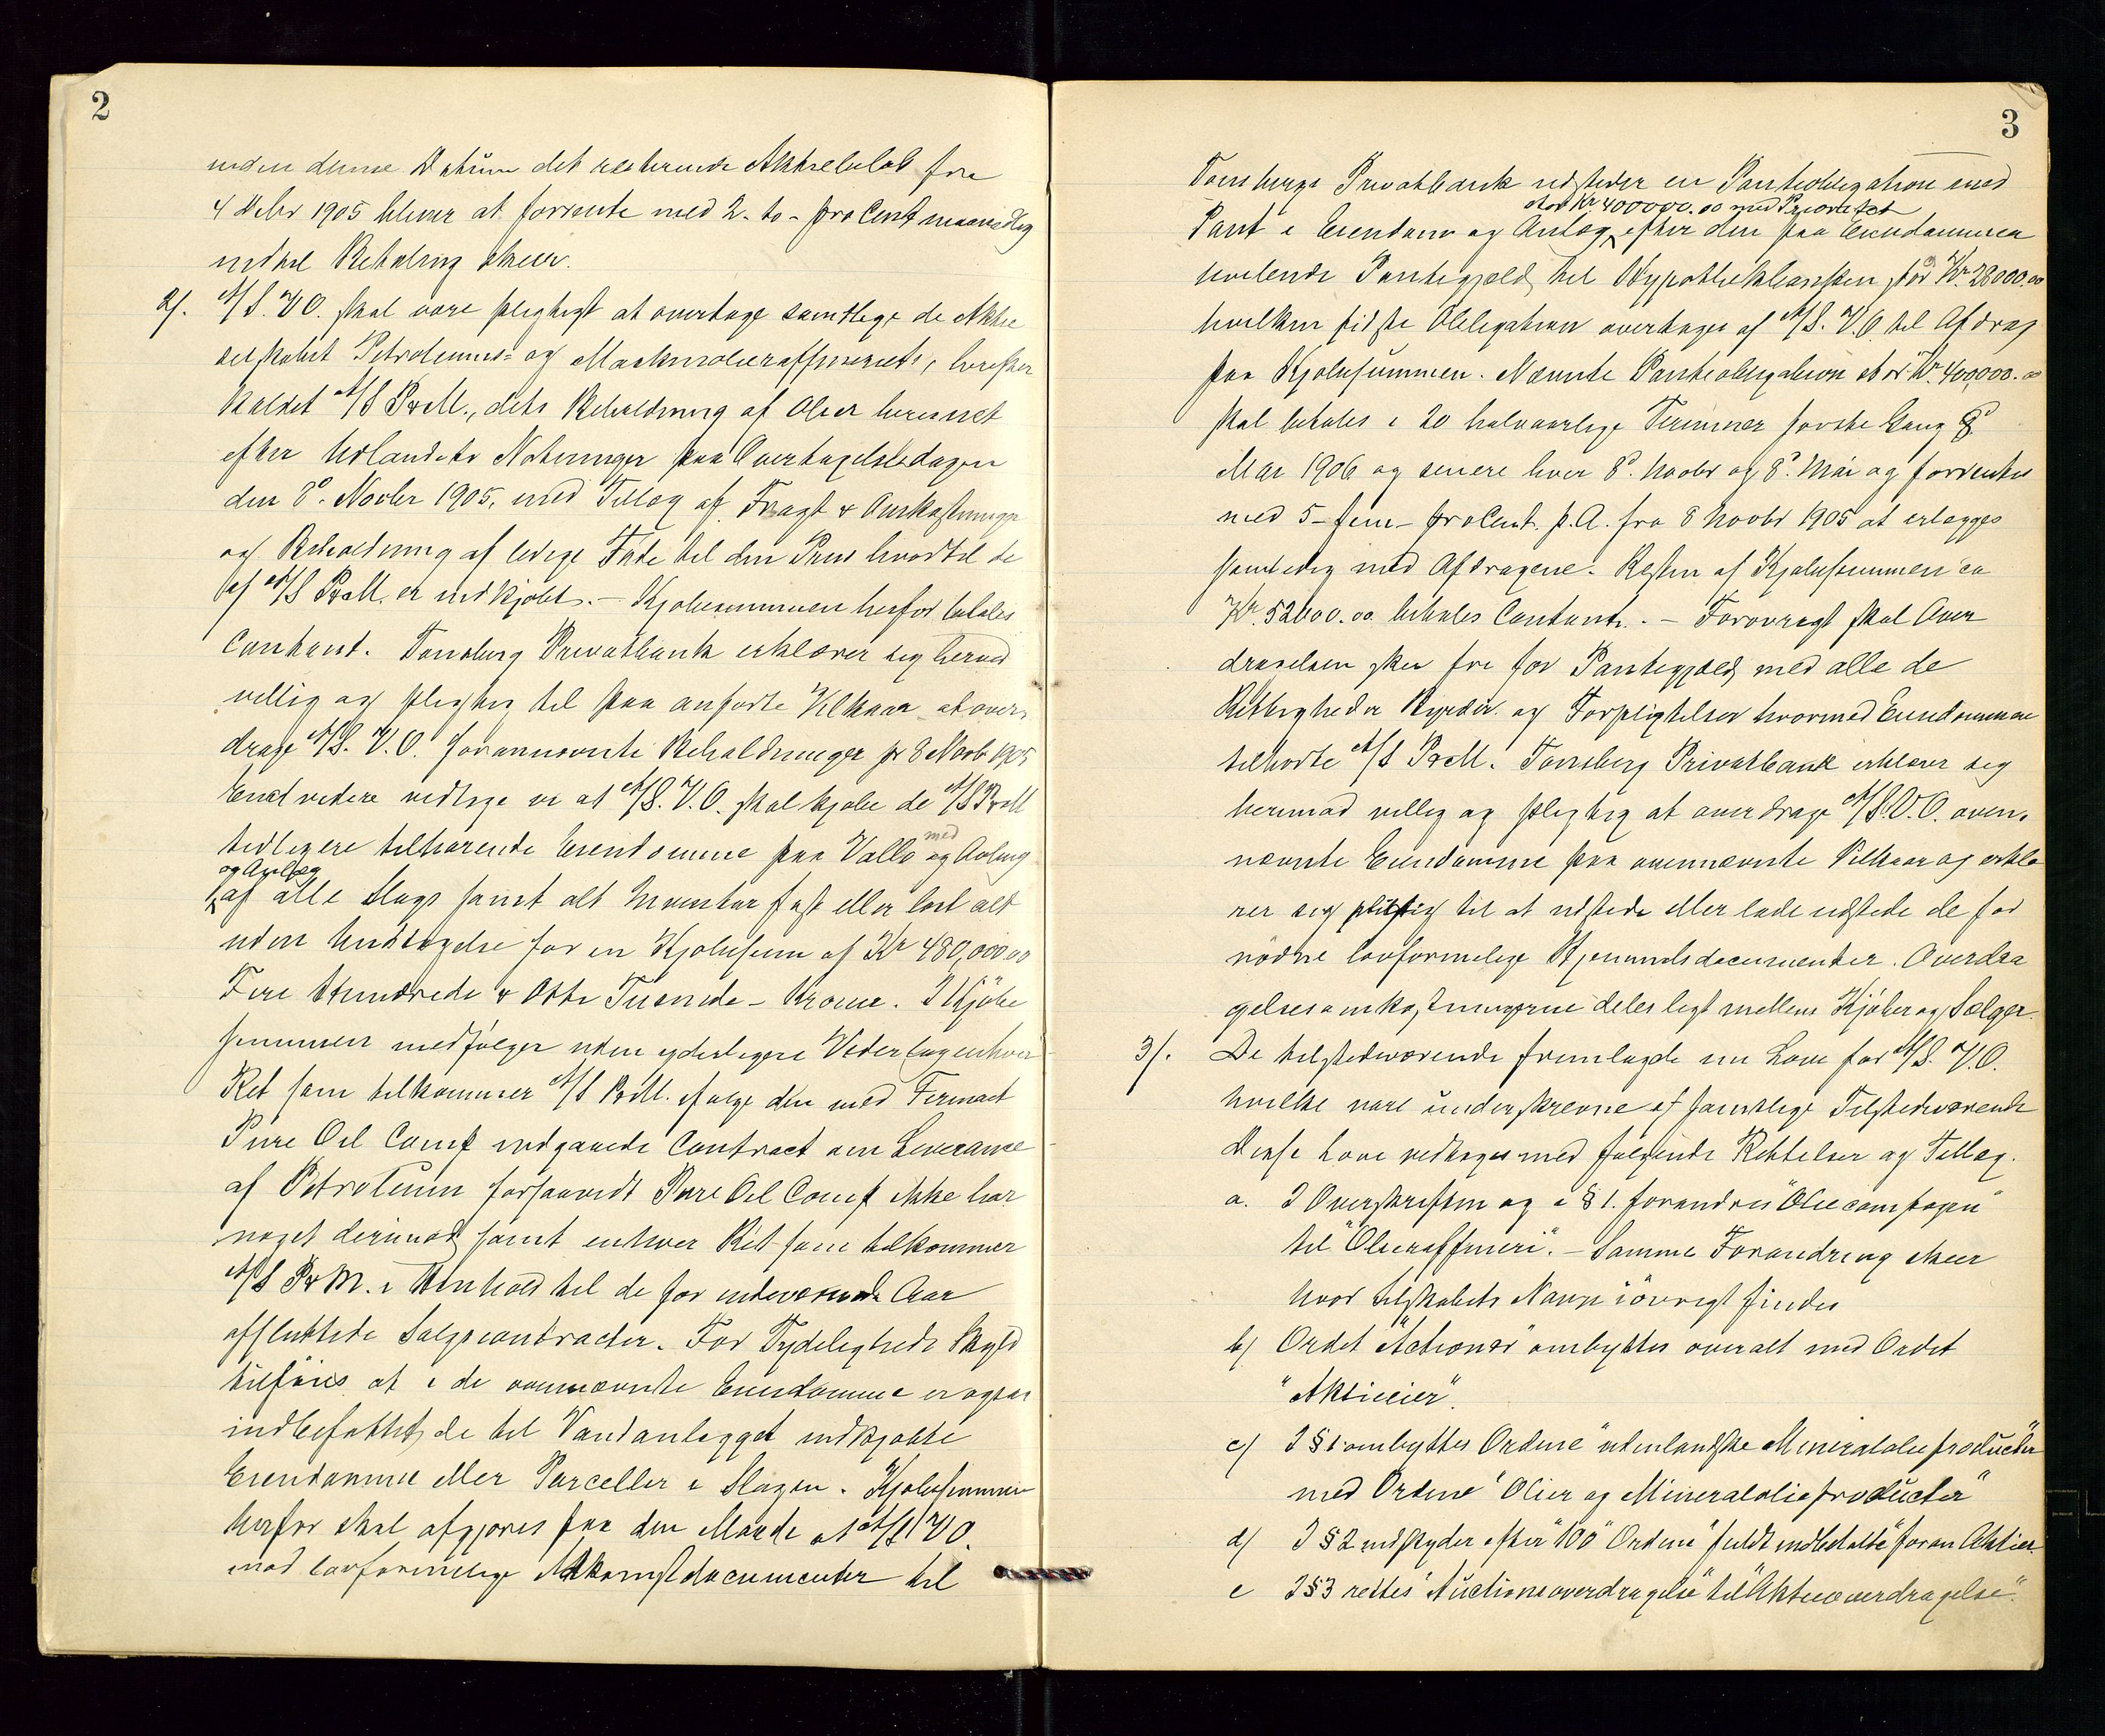 2
inden denne Datum det resterende Aktiebeløb fra
4 Debr 1905 bliver at forrente med 2 - to - pro Cent maanedlig
indtil Betaling skeer.
2/. A/S. V.O. skal være pligtigt at overtage samtlige de Aktie
selskabet Petroleums= og Maskinolieraffineriet, herefter
kaldet A/S P&M., dets Beholdning af Olier beregnet
efter Udlandets Noteringer paa Overtagelsesdagen
den 8de Novbr 1905, med Tillæg af Fragt & Omkostninger
og Beholdning af ledige Fade til den Pris hvortil de
af A/S P&M. er indkjøbt. – Kjøbesummen herfor betales
Contant. Tønsberg Privatbank erklærer sig herved
villig og pligtig til paa anførte Vilkaar at over-
drage A/S. V.O. forannævnte Beholdninger pr 8 Novb 1905
End videre vedtoges at A/S. V.O. skal kjøbe de A/S P&M
tidligere tilhørende Eiendomme paa Vallø med og
og Anlæg
af alle Slags samt alt Inventar fast eller løst alt
uden Undtagelse for en Kjøbesum af Kr 480,000.00
Fire Hundrede & Otti Tusinde - Kroner. I Kjøbe
summen medfølger uden yderligere Vederlag enhver
Ret som tilkommer A/S P&M. ifølge den med Firmaet
Pure Oil Comp indgaaede Contract om Leverance
af Petroleum forsaavidt Pure Oil Comp ikke har
noget derimod, samt enhver Ret som tilkommer
A/S P&M. i Henhold til de for indeværende Aar
afsluttede Salgscontracter. For Tydeligheds Skyld
tilføies at i de ovennævnte Eiendomme er ogsaa
indbefattet de til Vandanlægget indkjøbte
Eiendomme eller Parceller i Slagen. Kjøbesummen
herfor skal afgjøres paa den Maade at A/S V.O.
mod lovformelige Adkomstdocumenter til
3
Tønsbergs Privatbank udsteder en Pantobligation med
stor Kr 400000.00 med Prioritet
Pant i Eiendom og Anlæg efter den paa Eiendommen
hvilende Pantegjæld til Hypothekbanken stor Kr. 28000.00
hvilken sidste Obligation overtages af A/S. V.O. til Afdrag
paa Kjøbesummen. Nævnte Pantobligation stor Kr. 400,000.00
skal betales i 20 halvaarlige Terminer første Gang 8de
Mai 1906 og senere hver 8de Novbr og 8de Mai og forrentes
med 5 - fem - pro Cent. p.A. fra 8 Novbr 1905 at erlægges
samtidig med Afdragene. Resten af Kjøbesummen ca
Kr. 52000.00 betales Contant. – Forøvrigt skal Over
dragelsen ske fri for Pantegjæld, med alle de
Rettigheder Byrder og Forpligtelser hvormed Eiendommene
tilhørte A/S P&M. Tønsberg Privatbank erklærer sig
herimod villig og pligtig at overdrage A/S. V.O. oven-
nævnte Eiendomme paa ovennævnte Vilkaar og erklæ
rer sig pligtig til at udstede eller lade udstede de for
nødne lovformelige Hjemmelsdocumenter. Overdra
gelsesomkostningerne deles ligt mellem Kjøber og Sælger.
3/. De tilstedeværende fremlagde nu Love for A/S. V.O.
hvilke vare underskrevne af samtlige Tilstedeværende
Disse Love vedtoges med følgende Rettelser og Tillæg.
a. I Overskriften og i § 1. forandres "Oliecompagni"
til "Olieraffineri". – Samme Forandring skeer
hvor Selskabets Navn iøvrigt findes
b) Ordet "Actionær" ombyttes overalt med Ordet
"Aktieeier".
c) I § 1 ombyttes Ordene "udenlandske Mineralolieproducter"
med Ordene "Olier og Mineralolieproducter"
d) I § 2 indskydes efter "100" Ordene "fuldt indbetalte" foran Aktier.
e I § 3 rettes "Auctionsoverdragelse" til "Aktieoverdragelse".